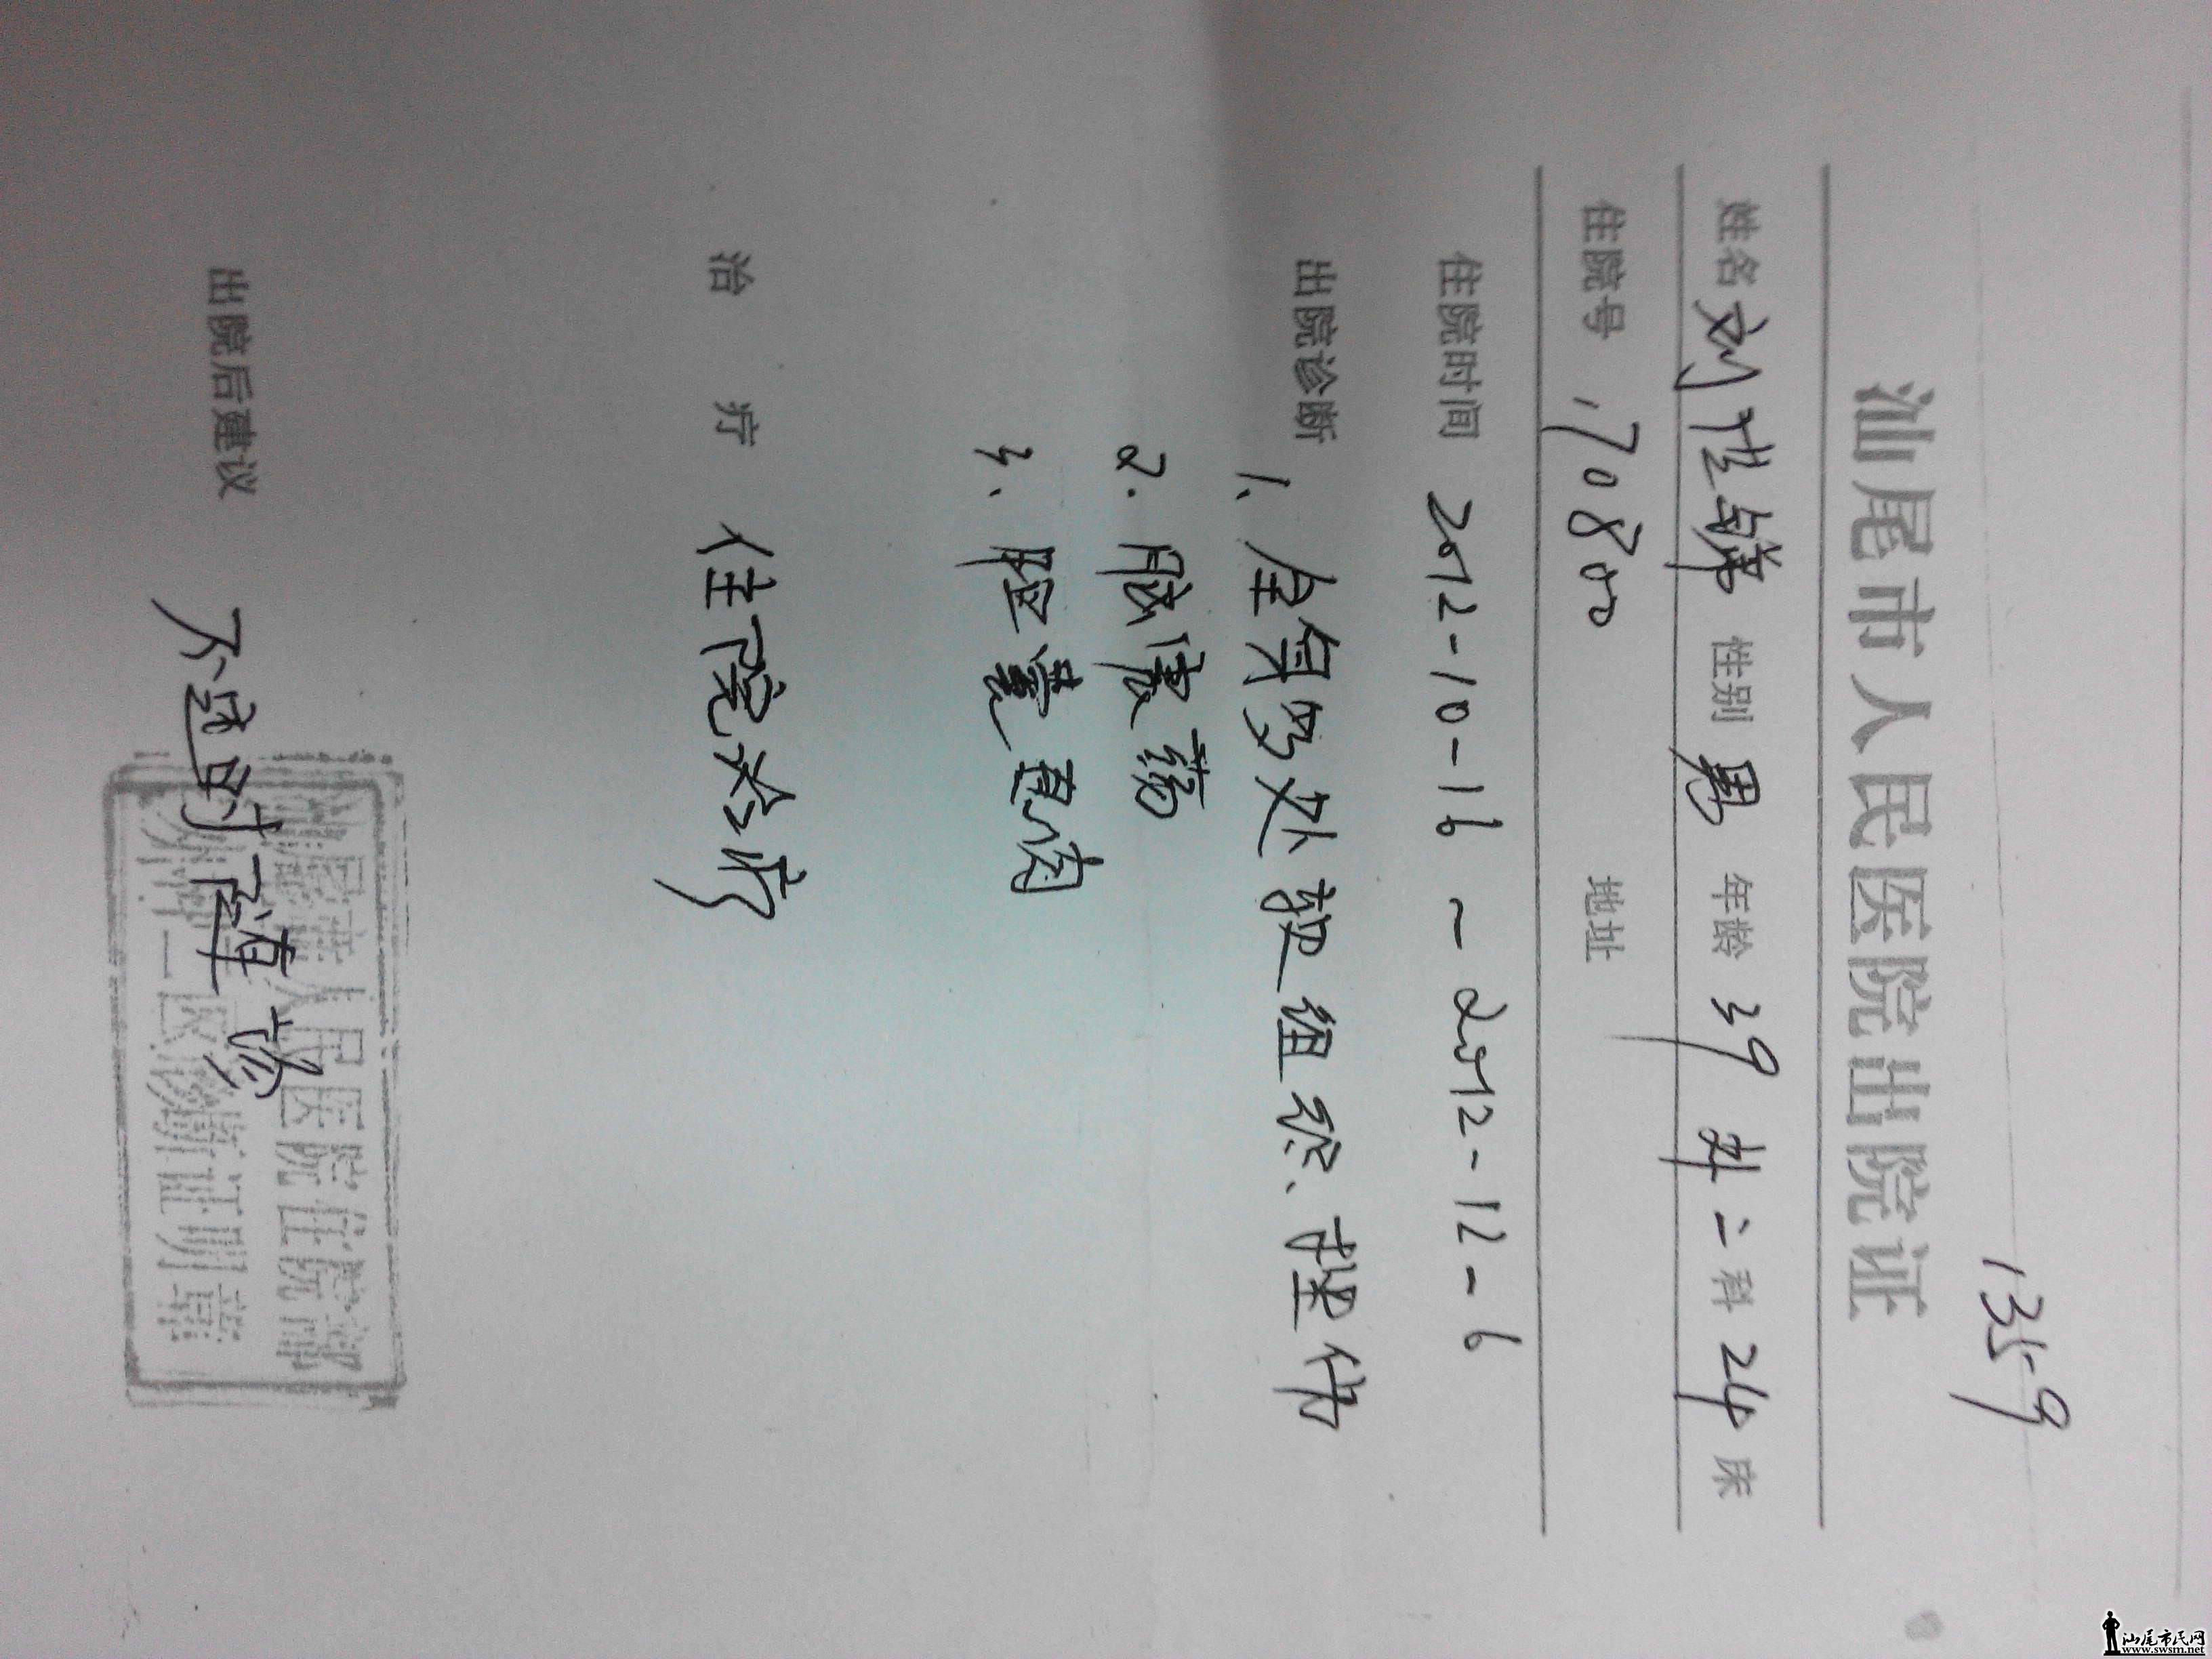 1359
汕尾市人民医院出院证
姓名 刘 性别 男 年龄 39 外二科 24 床
住院号 170800 地址
住院时间 2012-10-16 ~ 2012-12-6
出院诊断
1、全身多处软组织挫伤
2.脑震荡
3、胆囊息肉
治疗 住院治疗
出院后建议 不适时随诊
汕尾市人民医院住院部
外科二区诊断证明章
汕尾市民网
www.swsm.net